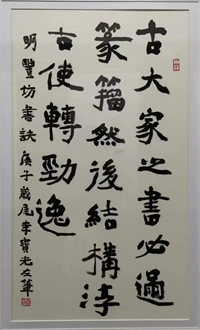 古大家之書必通
篆籀然後結構淳
古使轉勁逸
明豐坊書訣庚子歲尾李寶光左筆